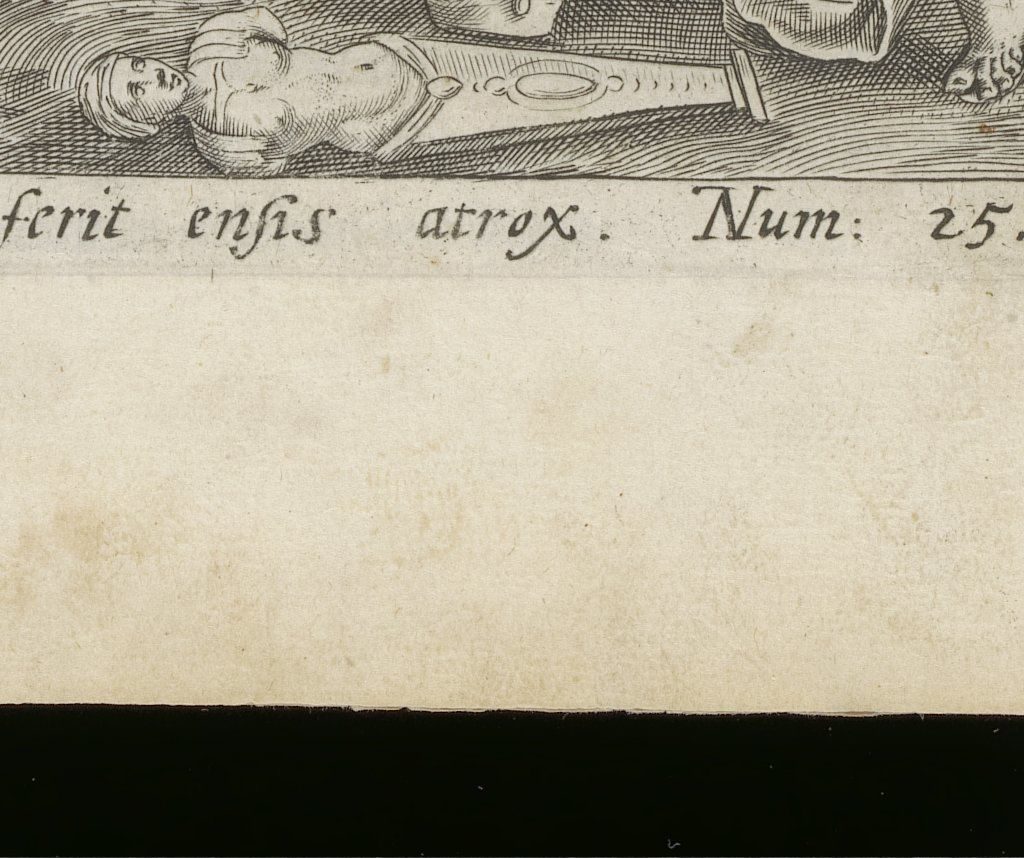 ferit ensis atrox. Num: 25.